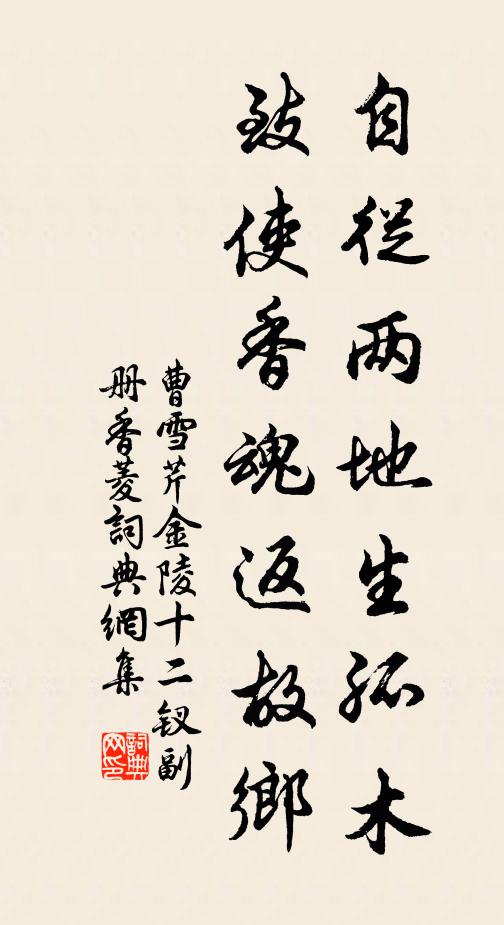 自從两地生孤木
致使香魂返故鄉
曹雪芹金陵十二釵副
册香菱詞典網集
詞典网印